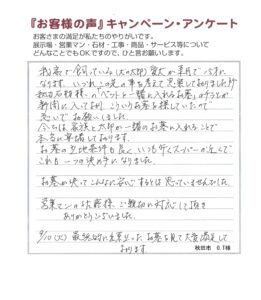 『お客様の声』キャンペーン・アンケート
お客さまの満足が私たちのやりがいです。
展示場・営業マン・石材・工事・商品・サービス等について
どんなことでもOKですので、ひと言お願いします。
我家で飼っている(犬の太郎)愛犬が老齢で
なります。いつかこの先の事も考えて思案しておりました所
秋田石材様の「ペットと一緒に入れるお墓」のチラシが
新聞に入っており、こういうお墓を探していたので
急いでお願いしました。
今では家族と太郎が一緒のお墓に入れることで
本当に準備しております。
お墓の立地条件も良く いつも行くスーパーの近くで
これも一つの決め手になりました。
お墓が決ってこんなに安心するとは思っていませんでした。
営業マンの佐藤様、ご親切に対応して頂き
ありがとうございました。
9/10(火) 最終的に出来上ったお墓を見て大変満足して
おります。
秋田市 O.T様